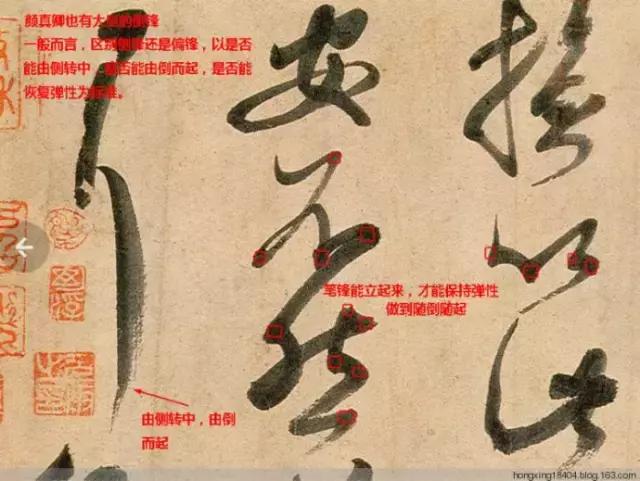 颜真卿也有大量的侧锋
一般而言，区别侧锋还是偏锋，以是否
能由侧转中，是否能由倒而起，是否能
恢复弹性为标准。
拯以此
安不然
笔锋能立起来，才能保持弹性
做到随倒随起
由侧转中，由倒
而起
hongxing18404.blog.163.com